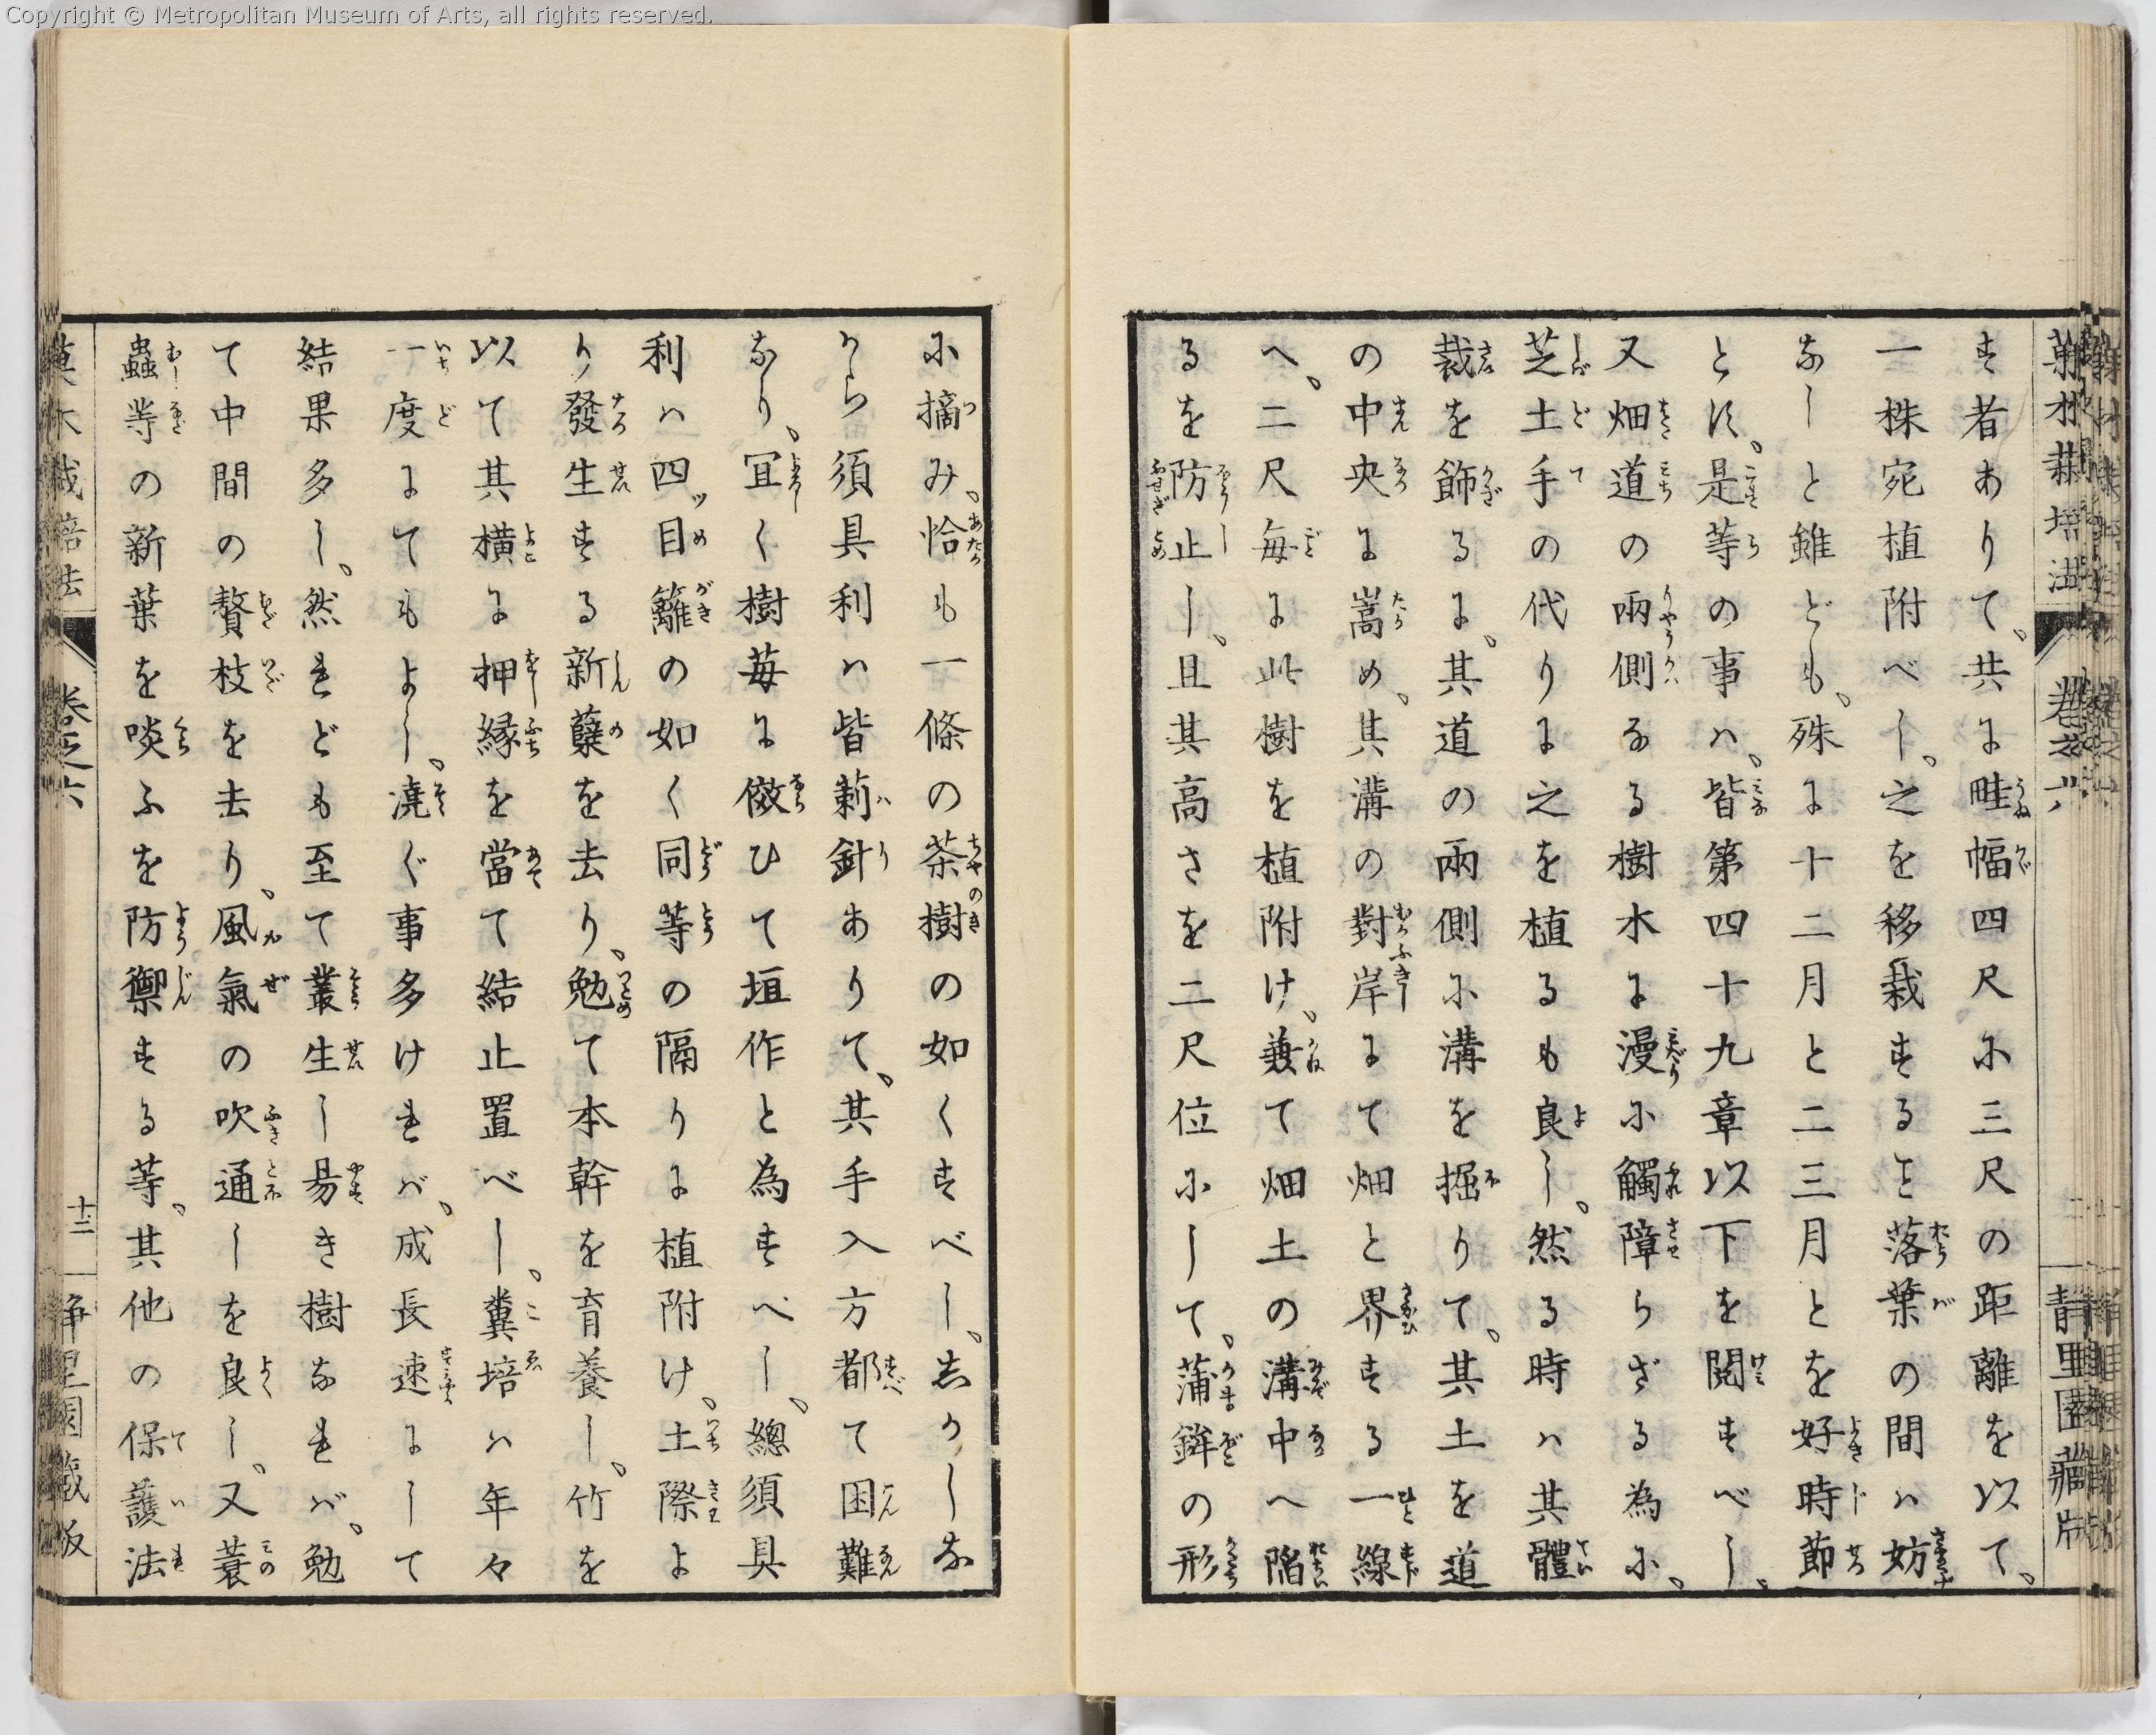 Copyright © Metropolitan Museum of Arts, all rights reserved.
す者ありて、共に畦幅四尺に三尺の距離を以て、
一株宛植附べし、之を移栽すること落葉の間ハ妨
なしと雖ども、殊に十二月と二三月とを好時節
とす、是等の事ハ、皆第四十九章以下を閲すべし、
又畑道の兩側なる樹木に漫に觸障らざる為に、
芝土手の代りに之を植るも良し、然る時ハ其體
裁を飾るに、其道の兩側に溝を掘りて、其土を道
の中央に嵩め、其溝の對岸にて畑と界する一線
へ、二尺毎に此樹を植附け、兼て畑土の溝中へ陷
るを防止し、且其高さを二尺位にして、蒲鉾の形
に摘み、恰も一條の茶樹の如くすべし、志かしな
から須具利ハ皆莿針ありて、其手入方都て困難
なり、冝く樹苺に倣ひて垣作と為すべし、總須具
利ハ四ッ目籬の如く同等の隔りに植附け、土際よ
り發生する新蘖を去り、勉て本幹を育養し、竹を
以て其横に押縁を當て結止置べし、糞培ハ年々
一度にてもよし、澆ぐ事多ければ、成長速にして
結果多し、然れども至て叢生し易き樹なれば、勉
て中間の贅枝を去り、風氣の吹通しを良し、又蓑
蟲等の新葉を啖ふを防禦する等、其他の保護法
菓木栽培法 卷之六 十二 静里園蔵版